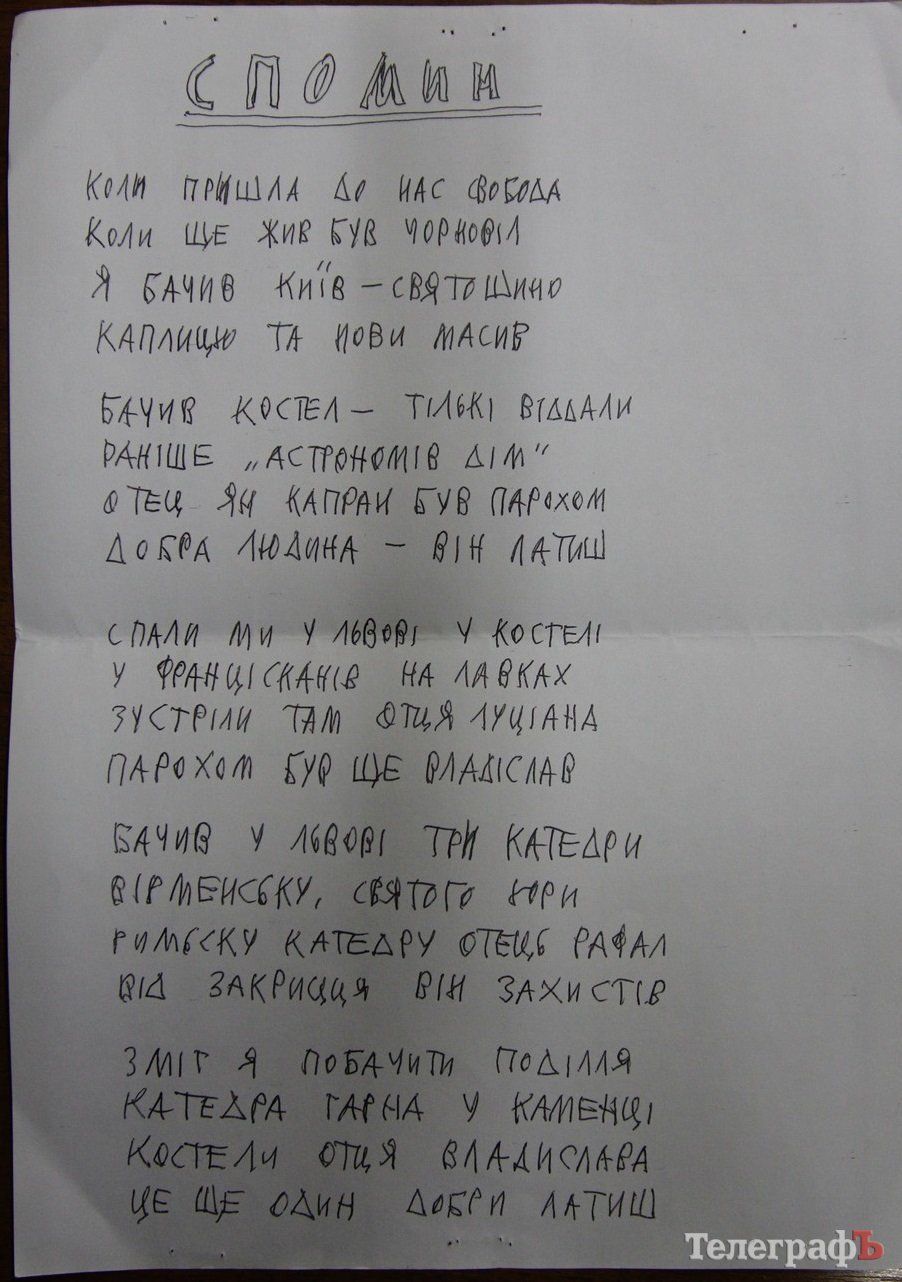 СПОМИН
КОЛИ ПРИШЛА ДО НАС СВОБОДА
КОЛИ ЩЕ ЖИВ БУВ ЧОРНОВІЛ
Я БАЧИВ КИЇВ – СВЯТОШИНО
КАПЛИЦЮ ТА НОВИ МАСИВ
БАЧИВ КОСТЕЛ – ТІЛЬКІ ВІДДАЛИ
РАНІШЕ „АСТРОНОМІВ ДІМ"
ОТЕЦ ЯН КАПРАН БУВ ПАРОХОМ
ДОБРА ЛЮДИНА – ВІН ЛАТИШ
СПАЛИ МИ У ЛЬВОВІ У КОСТЕЛІ
У ФРАНЦІСКАНІВ НА ЛАВКАХ
ЗУСТРІЛИ ТАМ ОТЦЯ ЛУЦІАНА
ПАРОХОМ БУВ ЩЕ ВЛАДІСЛАВ
БАЧИВ У ЛЬВОВІ ТРИ КАТЕДРИ
ВІРМЕНСЬКУ, СВЯТОГО ЮРИ
РИМЬСКУ КАТЕДРУ ОТЕЦЬ РАФАЛ
ВІД ЗАКРИЦЦЯ ВІН ЗАХИСТІВ
ЗМІГ Я ПОБАЧИТИ ПОДІЛЛЯ
КАТЕДРА ГАРНА У КАМЕНЦІ
КОСТЕЛИ ОТЦЯ ВЛАДИСЛАВА
ЦЕ ЩЕ ОДИН ДОБРИ ЛАТИШ
ТелеграфЪ